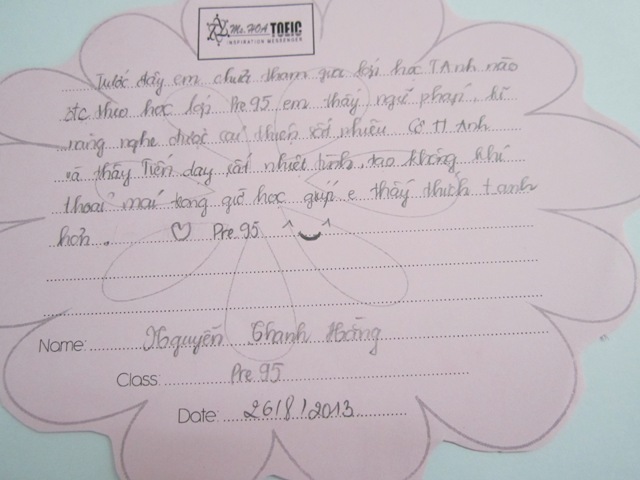 Ms. HOA TOEIC
INSPIRATION MESSENGER
Trước đây em chưa tham gia lớp học TAnh nào
đc theo học lớp Pre 95 em thấy ngữ pháp, kĩ
năng nghe được cải thiện rất nhiều. Cô H Anh
và thầy Tiến dạy rất nhiệt tình, tạo không khí
thoải mái trong giờ học giúp e thấy thích t.anh
hơn. ♡ Pre 95 ^‿^
Name: Nguyễn Thanh Hằng
Class: Pre 95
Date: 26/8/2013